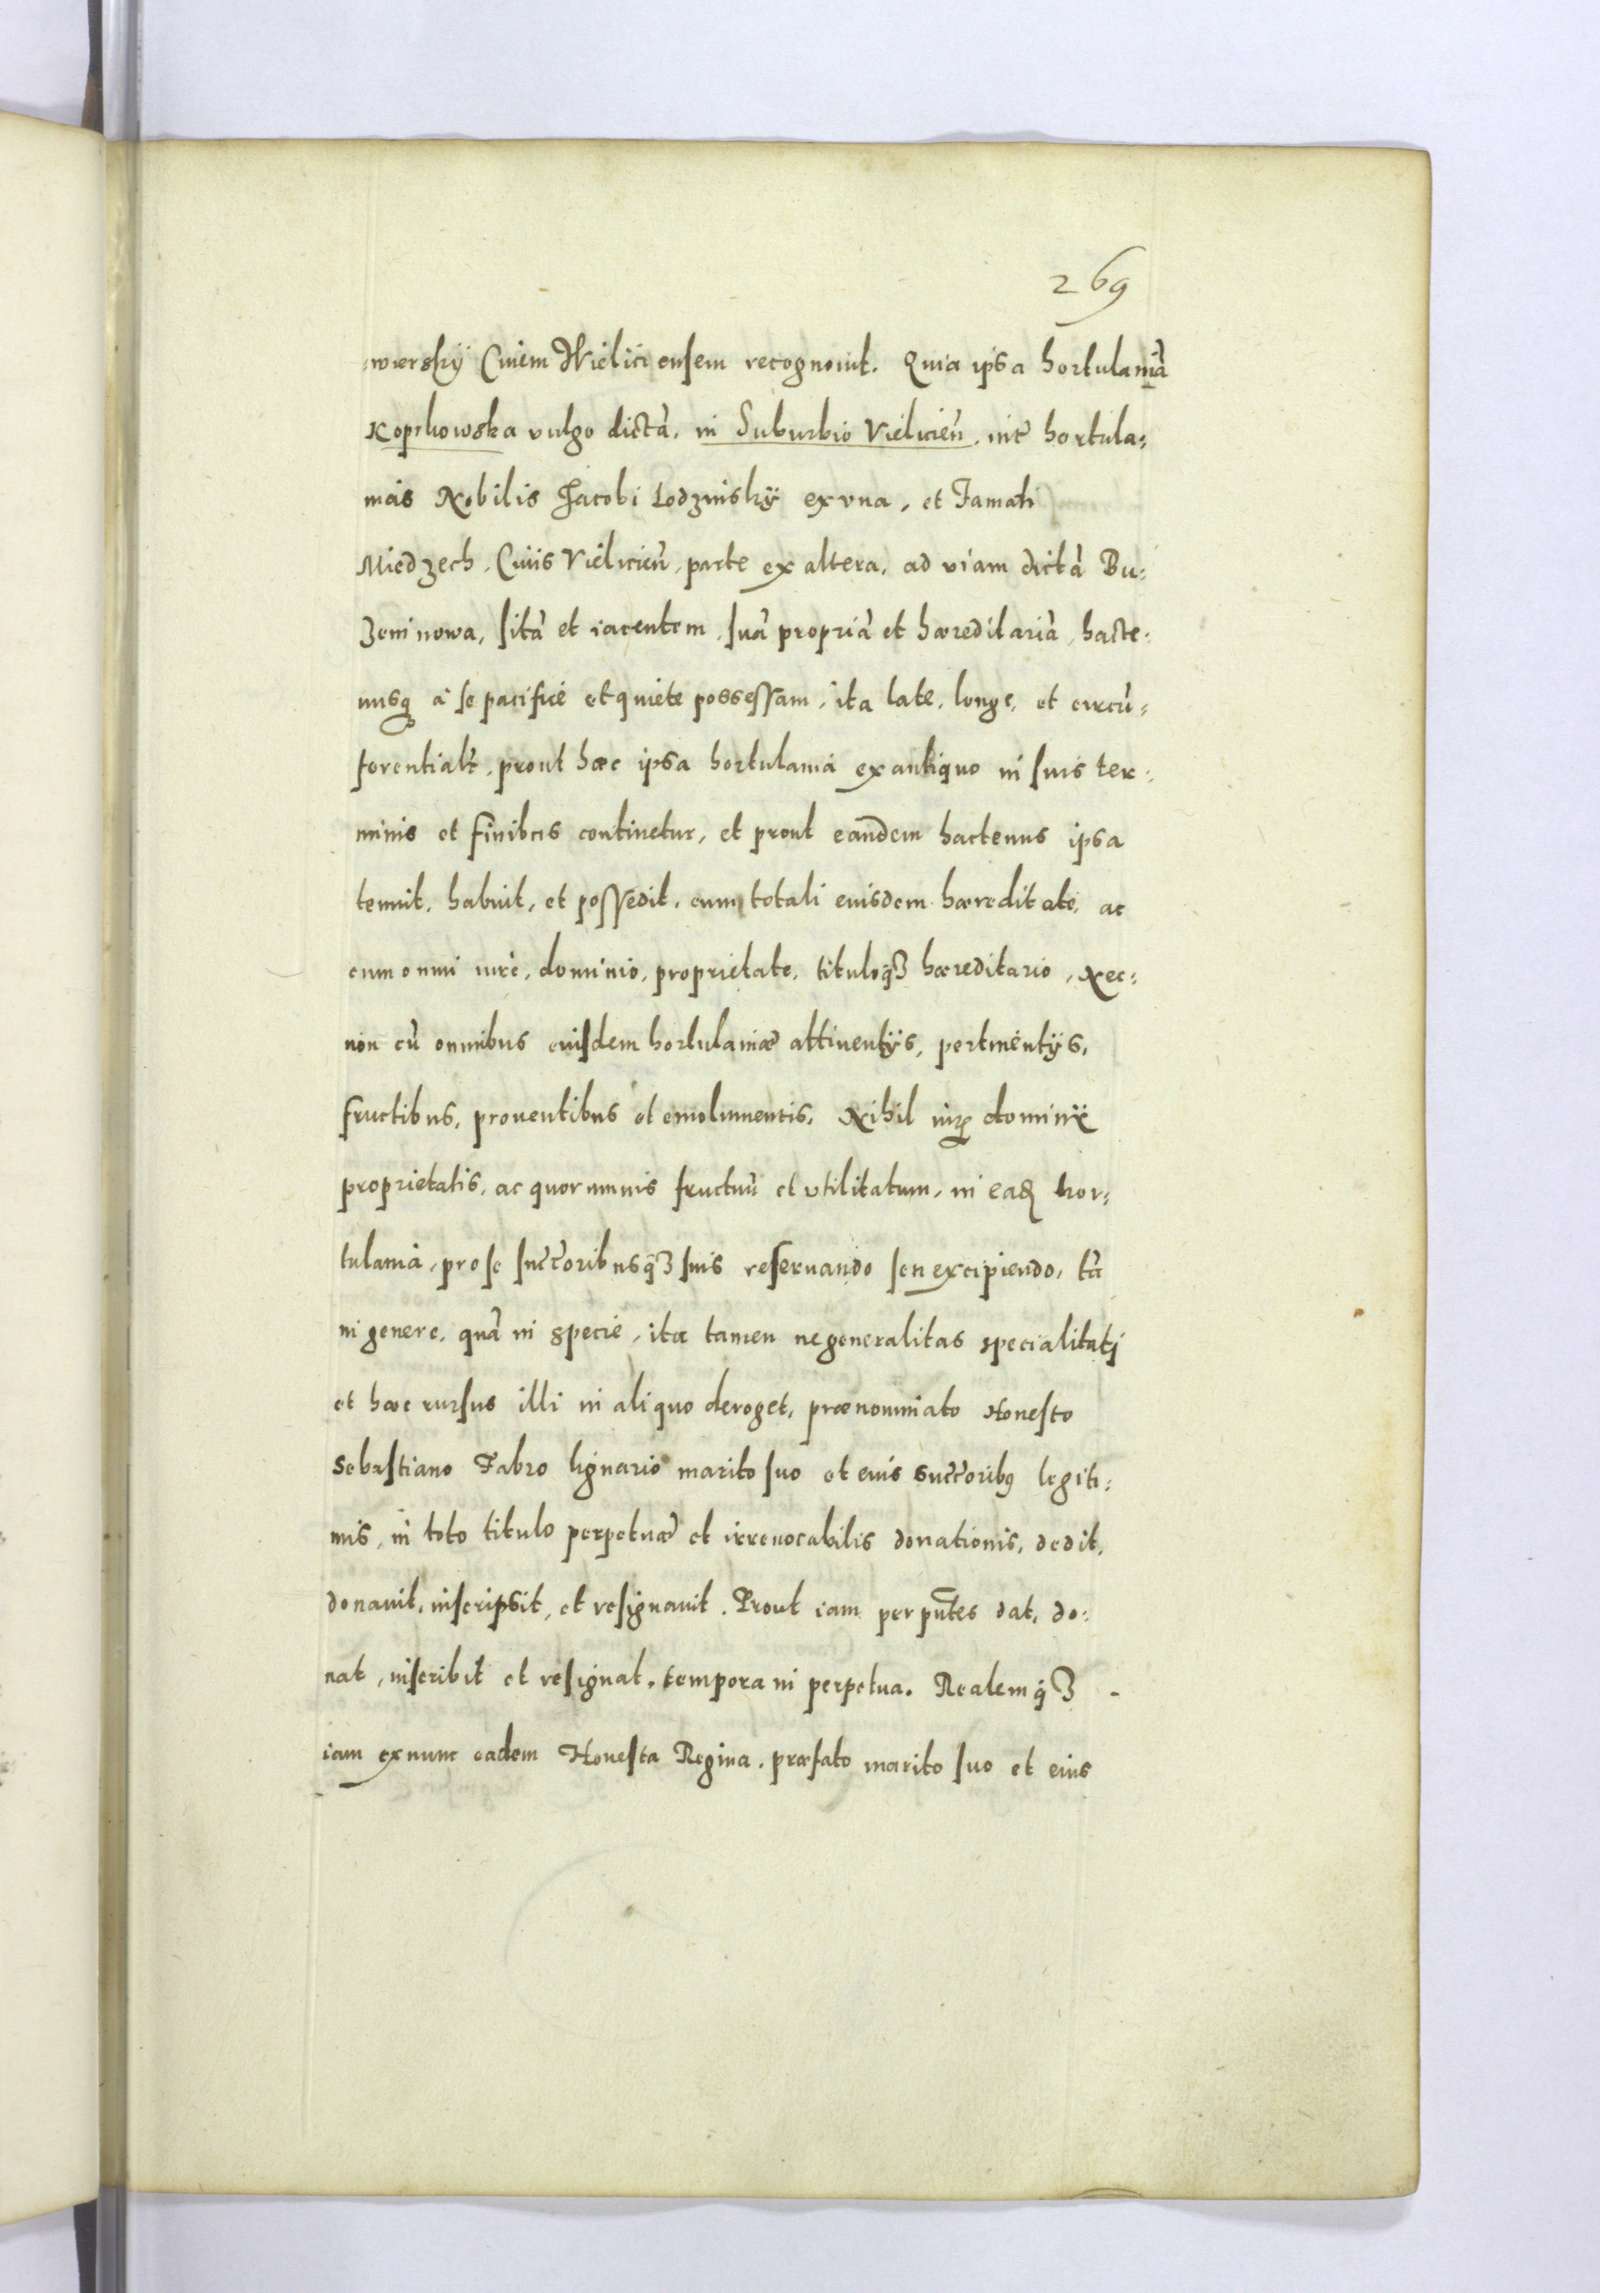 269
wiersky Ciuem Wieliciensem recognouit. Quia ipsa hortulaniã
Koprkowska vulgo dictã, in Suburbio Vielicień, intẽ hortula=
nias Nobilis Jacobi Lodzinskÿ ex vna, et Famati
Miedzech, Ciuis Vielicień, parte ex altera, ad viam dictã Bu=
zeninowa, sitã et iacentem, suã propriã et hæreditariã, hacte=
nusq à se pacificè et quiete possessam, ita late, longe, et circũ=
ferentialr̃, prout hæc ipsa hortulania ex antiquo in suis ter=
minis et finibus continetur, et prout eandem hactenus ipsa
tenuit, habuit, et possedit, cum totali eiusdem hæreditate, ac
cum omni iure, dominio, proprietate, tituloqȝ hæreditario, Nec=
non cũ omnibus eiusdem hortulaniæ attinentÿs, pertinentÿs,
fructibus, prouentibus et emolumentis, Nihil iurꝭ dominÿ
proprietatis, ac quorumuis fructuũ et vtilitatum, in eaɖ hor=
tulania, pro se succ̃oribusqȝ suis reseruando seu excipiendo, tã
in genere, quã in specie, ita tamen ne generalitas specialitatj
et hæc rursus illi in aliquo deroget, prænominato Honesto
Sebastiano Fabro lignario marito suo et eius succ̃oribꝰ legiti=
mis, in toto titulo perpetuæ et irreuocabilis donationis, dedit,
donauit, inscripsit, et resignauit. Prout iam per pñtes dat, do=
nat, inscribit et resignat, tempora in perpetua. Realemqȝ -
iam ex nunc eadem Honesta Regina, præfato marito suo et eius